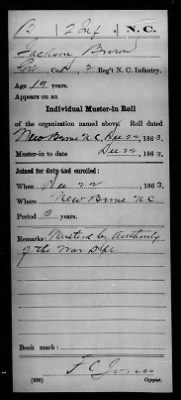 B | 2 Inf | N.C.
Jackson Brown
Pvt, Co. A, 2 Reg't N. C. Infantry.
Age 19 years.
Appears on an
Individual Muster-in Roll
of the organization named above. Roll dated
New Berne N.C. Dec 22, 1863.
Muster-in to date Dec 22, 1863.
Joined for duty and enrolled:
When Dec 22, 1863,
Where New Berne N.C.
Period 3 years.
Remarks: Mustered by authority
of the War Dept.
Book mark:
F C Jones
Copyist.